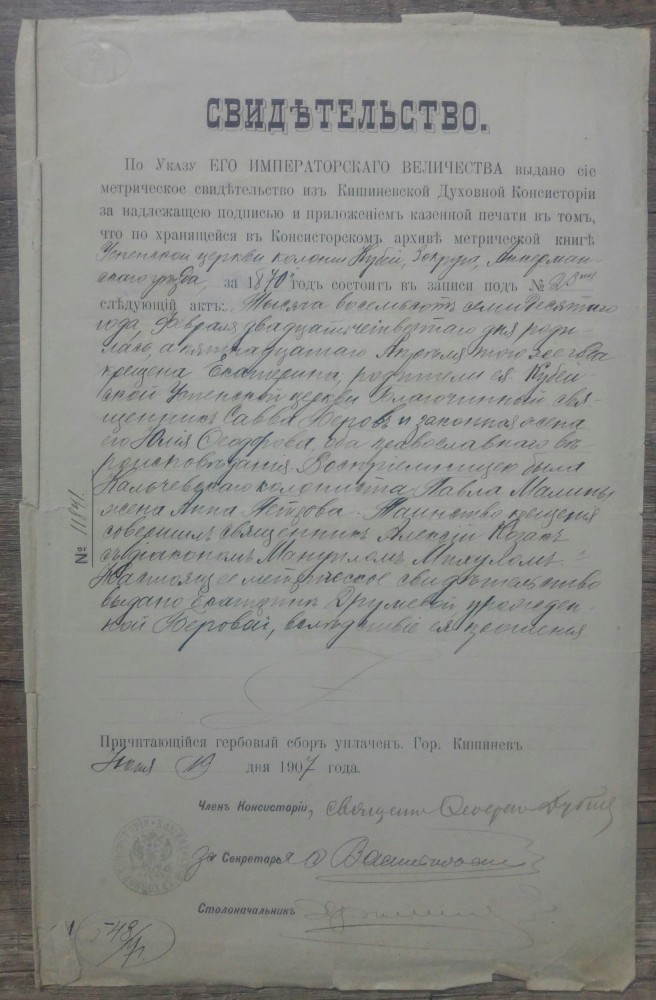 СВИДѢТЕЛЬСТВО.
По Указу ЕГО ИМПЕРАТОРСКАГО ВЕЛИЧЕСТВА выдано сіе
метрическое свидѣтельство изъ Кишиневской Духовной Консисторіи
за надлежащею подписью и приложеніемъ казенной печати въ томъ,
что по хранящейся въ Консисторскомъ архивѣ метрической книгѣ
Успенской церкви колоніи Кубей, 3 округа, Аккерман-
скаго уѣзда, за 1870 годъ состоитъ въ записи подъ №
слѣдующій актъ: Тысяча восемьсотъ семидесятаго
года, Февраля двадцать четвертаго дня роди-
лась, а пятнадцатаго того же года
крещена Екатерина, родители ея: Кубей-
ской Успенской церкви благочинный свя-
щенникъ Савва Беровъ и законная жена
его Юлія Ѳеодорова, оба православнаго вѣ-
роисповѣданія. Воспріемницею была
колониста Павла Малины
жена Анна Петрова. Таинство крещенія
совершилъ священникъ Алексій Козакъ
съ діакономъ Мануиломъ Михуломъ.
Настоящее метрическое свидѣтельство
выдано Екатеринѣ Друмевой урожден-
ной Беровой, вслѣдствіе ея прошенія
№ 11841.
Причитающійся гербовый сборъ уплаченъ. Гор. Кишиневъ
Іюня 19 дня 1907 года.
Членъ Консисторіи, священникъ
За Секретаря
Столоначальникъ